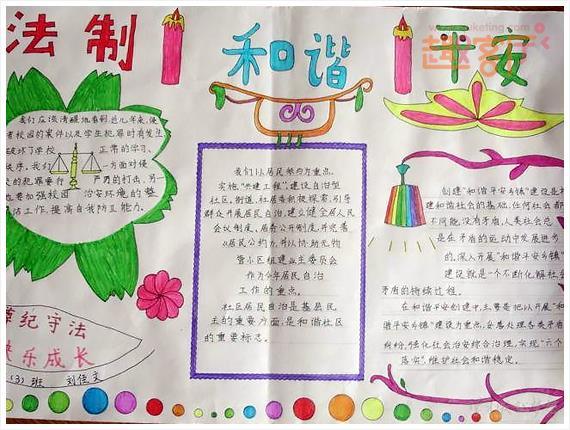 法制
和谐
平安
我们应该清醒地看到近几年来,侵
害校园的案件以及学生犯罪时有发生
破坏了学校 正常的学习、
秩序,我们 一方面对侵
的犯罪要行 严厉的打击,另一
也要加强校园 治安环境的整
工作,提高自我防卫能力。
遵纪守法
快乐成长
(3)班 刘佳文
我们以居民参与为重点。
实施“共建工程”,建设自治型
社区,街道,社居委积极探索,引导
群众开展居民自治,建立健全居人民
会议制度,居务公开制度,并完善
以居民公约为,并以协助元物
管小区组建业主委员会
作为今年居民自治
工作的重点。
社区居民自治是基层民
主的重要方面,是和谐社区
的重要标志。
创建“和谐平安乡镇”建设是和
建和谐社会的基础,任何社会都
不可能没有矛盾,人类社会总
是在矛盾的运动中发展进步
的,深入开展“和谐平安乡镇”
建设就是一个不断化解社会
矛盾的持续过程。
在和谐平安创建中,主要是把以开展“和
谐平安乡镇”建设为重点,妥善处理各类矛盾
纠纷,强化社会治安综合治理,实现“六个
落实”,维护社会和谐稳定。
趣客